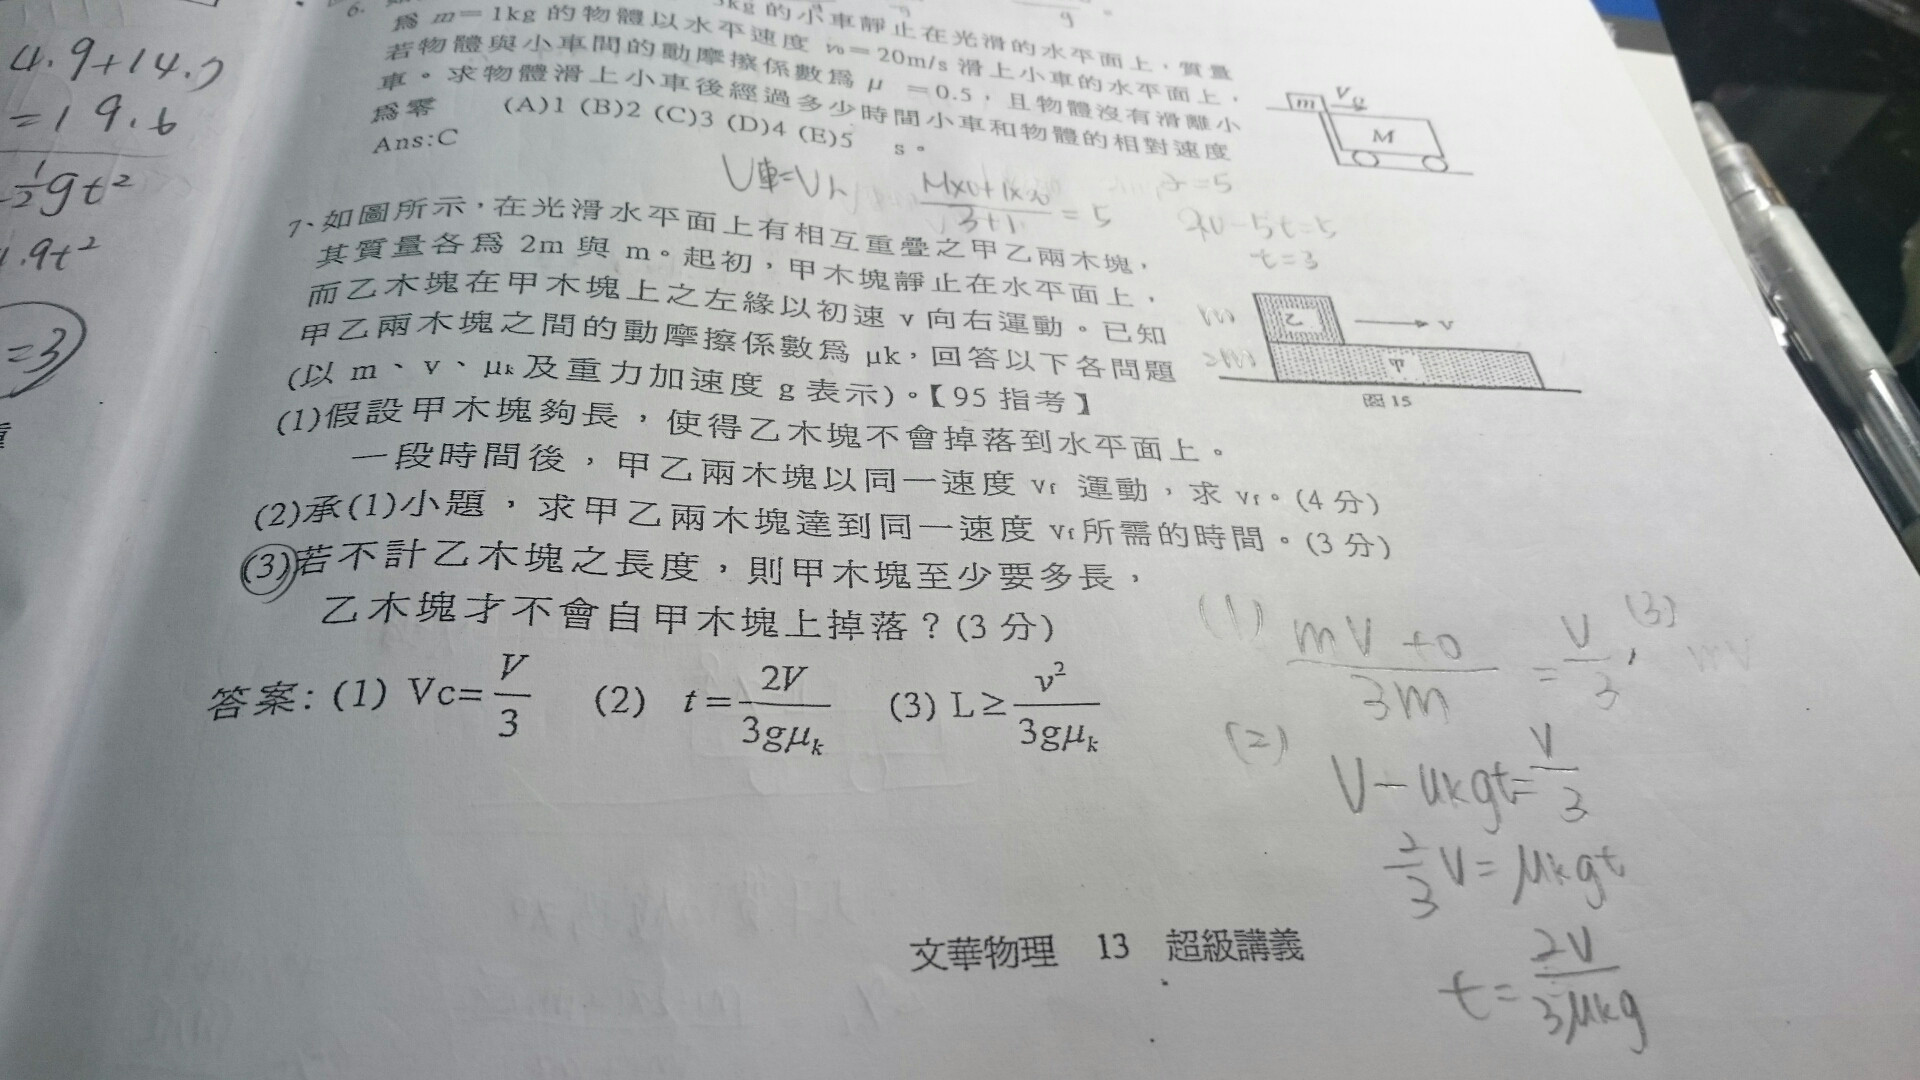 4.9+14.7
=19.6
½gt²
4.9t²
=3
6.
3kg 的小車靜止在光滑的水平面上,質量
為 m=1kg 的物體以水平速度 v₀=20m/s 滑上小車的水平面上,
若物體與小車間的動摩擦係數為 μ =0.5,且物體沒有滑離小
車。求物體滑上小車後經過多少時間小車和物體的相對速度
為零 (A)1 (B)2 (C)3 (D)4 (E)5 s。
Ans:C
m
M
=5
20-5t=5
t=3
7、如圖所示,在光滑水平面上有相互重疊之甲乙兩木塊,
其質量各為 2m 與 m。起初,甲木塊靜止在水平面上,
而乙木塊在甲木塊上之左緣以初速 v 向右運動。已知
甲乙兩木塊之間的動摩擦係數為 μk,回答以下各問題
(以 m、v、μk 及重力加速度 g 表示)。【95 指考】
m
2m
乙
v
甲
圖 15
(1)假設甲木塊夠長,使得乙木塊不會掉落到水平面上。
一段時間後,甲乙兩木塊以同一速度 vf 運動,求 vf。(4 分)
(2)承(1)小題,求甲乙兩木塊達到同一速度 vf所需的時間。(3 分)
(3)若不計乙木塊之長度,則甲木塊至少要多長,
乙木塊才不會自甲木塊上掉落?(3 分)
答案: (1) Vc=V/3 (2) t=2V/3gμk (3) L≥v²/3gμk
(1) mV+0/3m = V/3, (3) mV
(2) V-μkgt=V/3
2/3V=μkgt
t=2V/3μkg
文華物理 13 超級講義